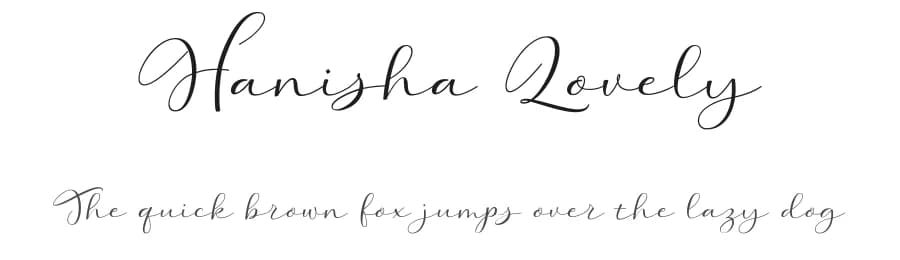 Hanisha Lovely
The quick brown fox jumps over the lazy dog